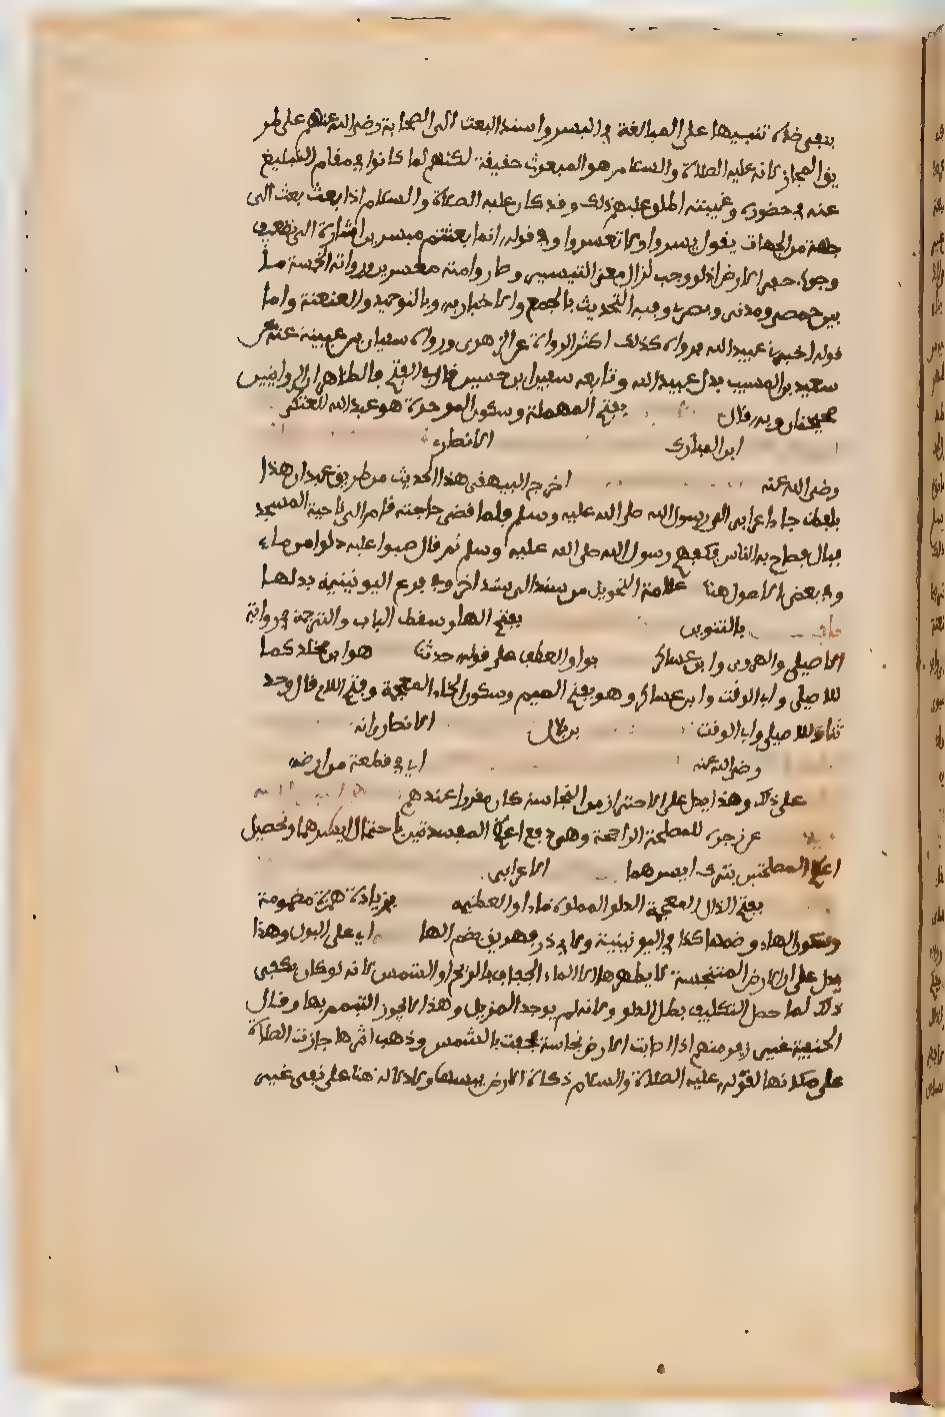 بنفي ضده تنبيها على المبالغة في اليسر واسند البعث الى الصحابة رضي الله عنهم على طر
يق المجاز لانه عليه الصلاة والسلام هو المبعوث حقيقة لكنهم لما كانوا في مقام التبليغ
عنه في حضوره وغيبته اطلق عليهم ذلك وقد كان عليه الصلاة والسلام اذا بعث بعثا الى
جهة من الجهات يقول يسروا ولا تعسروا وفي قوله انما بعثتم ميسرين اشارة الى تضعيف
وجوب حفر الارض اذ لو وجب لزال معنى التيسير وصاروا معسرين ورواته الخمسة ما
بين حمصي ومدني وبصري وفيه التحديث بالجمع والاخبار به وبالتوحيد والعنعنة واما
قوله اخبرنا عبيد الله فرواه كذلك اكثر الرواة عن الزهري ورواه سفيان بن عيينة عنه عن
سعيد بن المسيب بدل عبيد الله وتابعه سفيان بن حسين قال في الفتح والظاهر ان الروايتين
صحيحتان وبه قال بفتح المهملة وسكون الموحدة هو عبد الله العتكي
ابن المبارك الانصاري
رضي الله عنه اخرج البيهقي هذا الحديث من طريق عبدان هذا
بلفظ جاء اعرابي الى رسول الله صلى الله عليه وسلم فلما قضى حاجته قام الى ناحية المسجد
فبال فصاح به الناس فكفهم رسول الله صلى الله عليه وسلم ثم قال صبوا عليه دلوا من ماء
وفي بعض الاصول هنا علامة التحويل من سند الى سند اخر وفي فرع اليونينية بدلها
بالتنوين بفتح الهاء وسقط الباب والترجمة في رواية
الاصيلي والهروي وابن عساكر بواو العطف على قوله حدثنا هو ابن مخلد كما
للاصيلي وابي الوقت وابن عساكر وهو بفتح الميم وسكون الخاء المعجمة وفتح اللام قال وحد
ثنا وللاصيلي وابي الوقت بن بلال الانصاري انه
رضي الله عنه اي في قطعة من ارضه
على ذلك وهذا يدل على الاحتراز من النجاسة كان مقررا عندهم
عن زجره للمصلحة الراجحة وهي دفع اعظم المفسدتين باحتمال ايسرهما وتحصيل
اعظم المصلحتين بترك ايسرهما الاعرابي
بفتح الذال المعجمة الدلو المملوءة ماء او العظيمة بزيادة همزة مضمومة
وسكون الهاء وضمها كذا في اليونينية ولابي ذر فهريق بضم الهاء اي على البول وهذا
يدل على ان الارض المتنجسة لا يطهرها الا الماء لا الجفاف بالريح او الشمس لانه لو كان يكفي
ذلك لما حصل التكليف بطلب الدلو ولانه لم يوجد المزيل ولهذا لا يجوز التيمم بها وقال
الحنفية غير زفر منهم اذا اصابت الارض نجاسة فجفت بالشمس وذهب اثرها جازت الصلاة
على مكانها لقوله عليه الصلاة والسلام ذكاة الارض يبسها ولا دلالة هنا على نفي غير